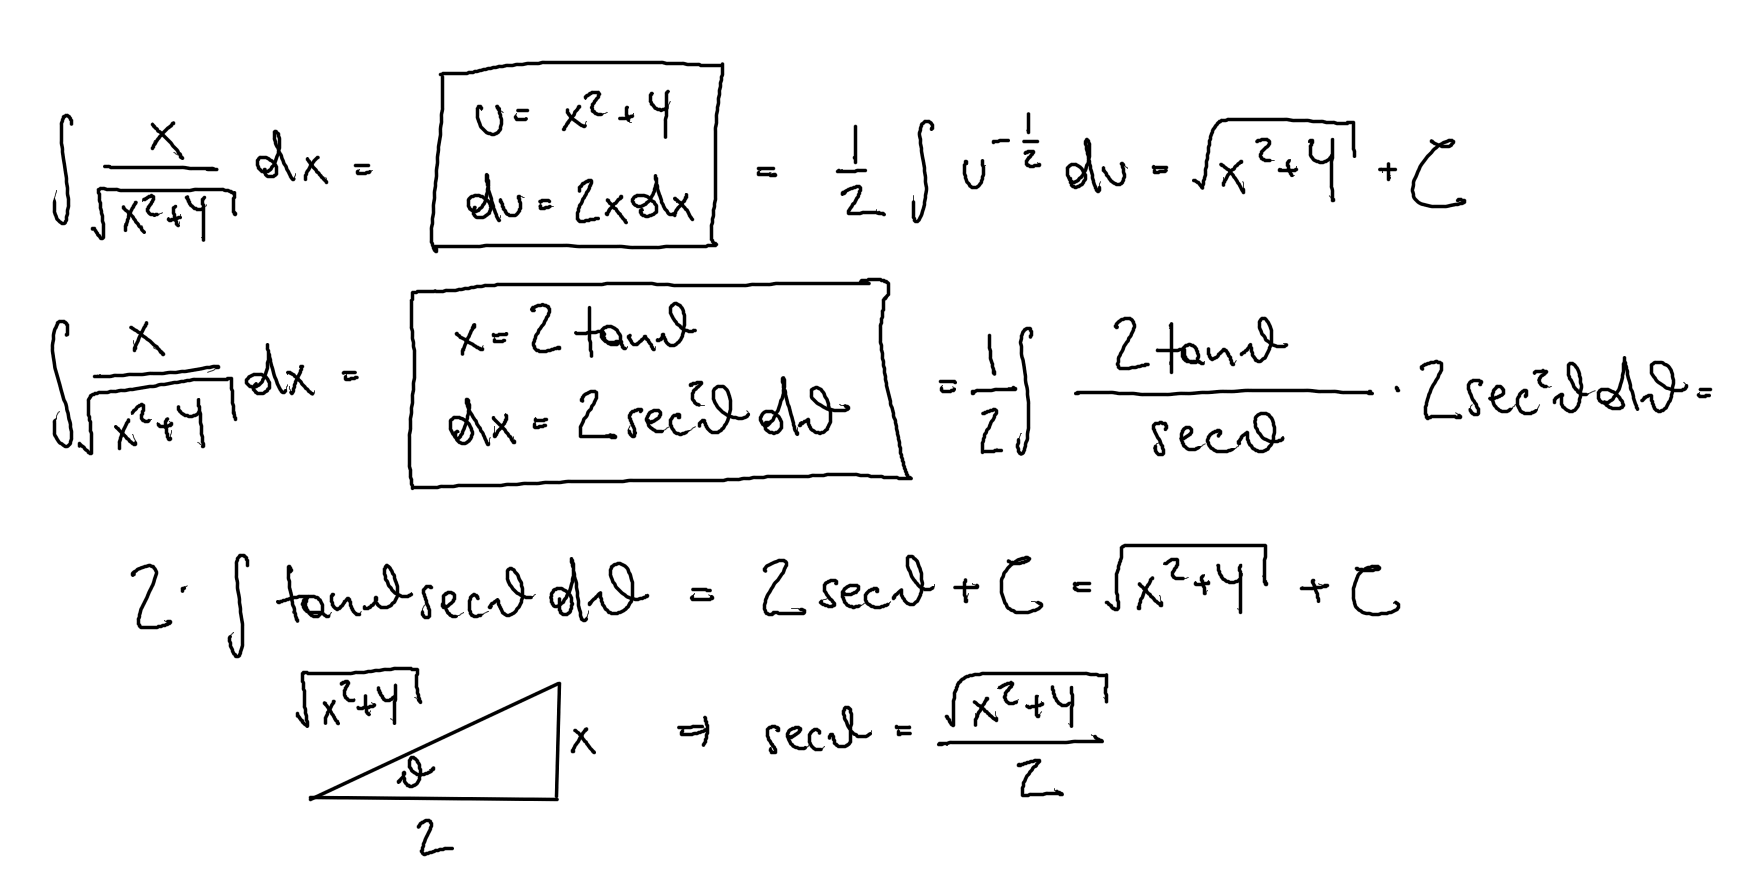 ∫ x/√(x²+4) dx = [u = x²+4, du = 2xdx] = 1/2 ∫ u^(-1/2) du = √(x²+4) + C
∫ x/√(x²+4) dx = [x = 2 tanϑ, dx = 2 sec²ϑ dϑ] = 1/2 ∫ 2 tanϑ/secϑ · 2 sec²ϑ dϑ =
2 · ∫ tanϑ secϑ dϑ = 2 secϑ + C = √(x²+4) + C
√(x²+4) ϑ x 2 ⇒ secϑ = √(x²+4)/2